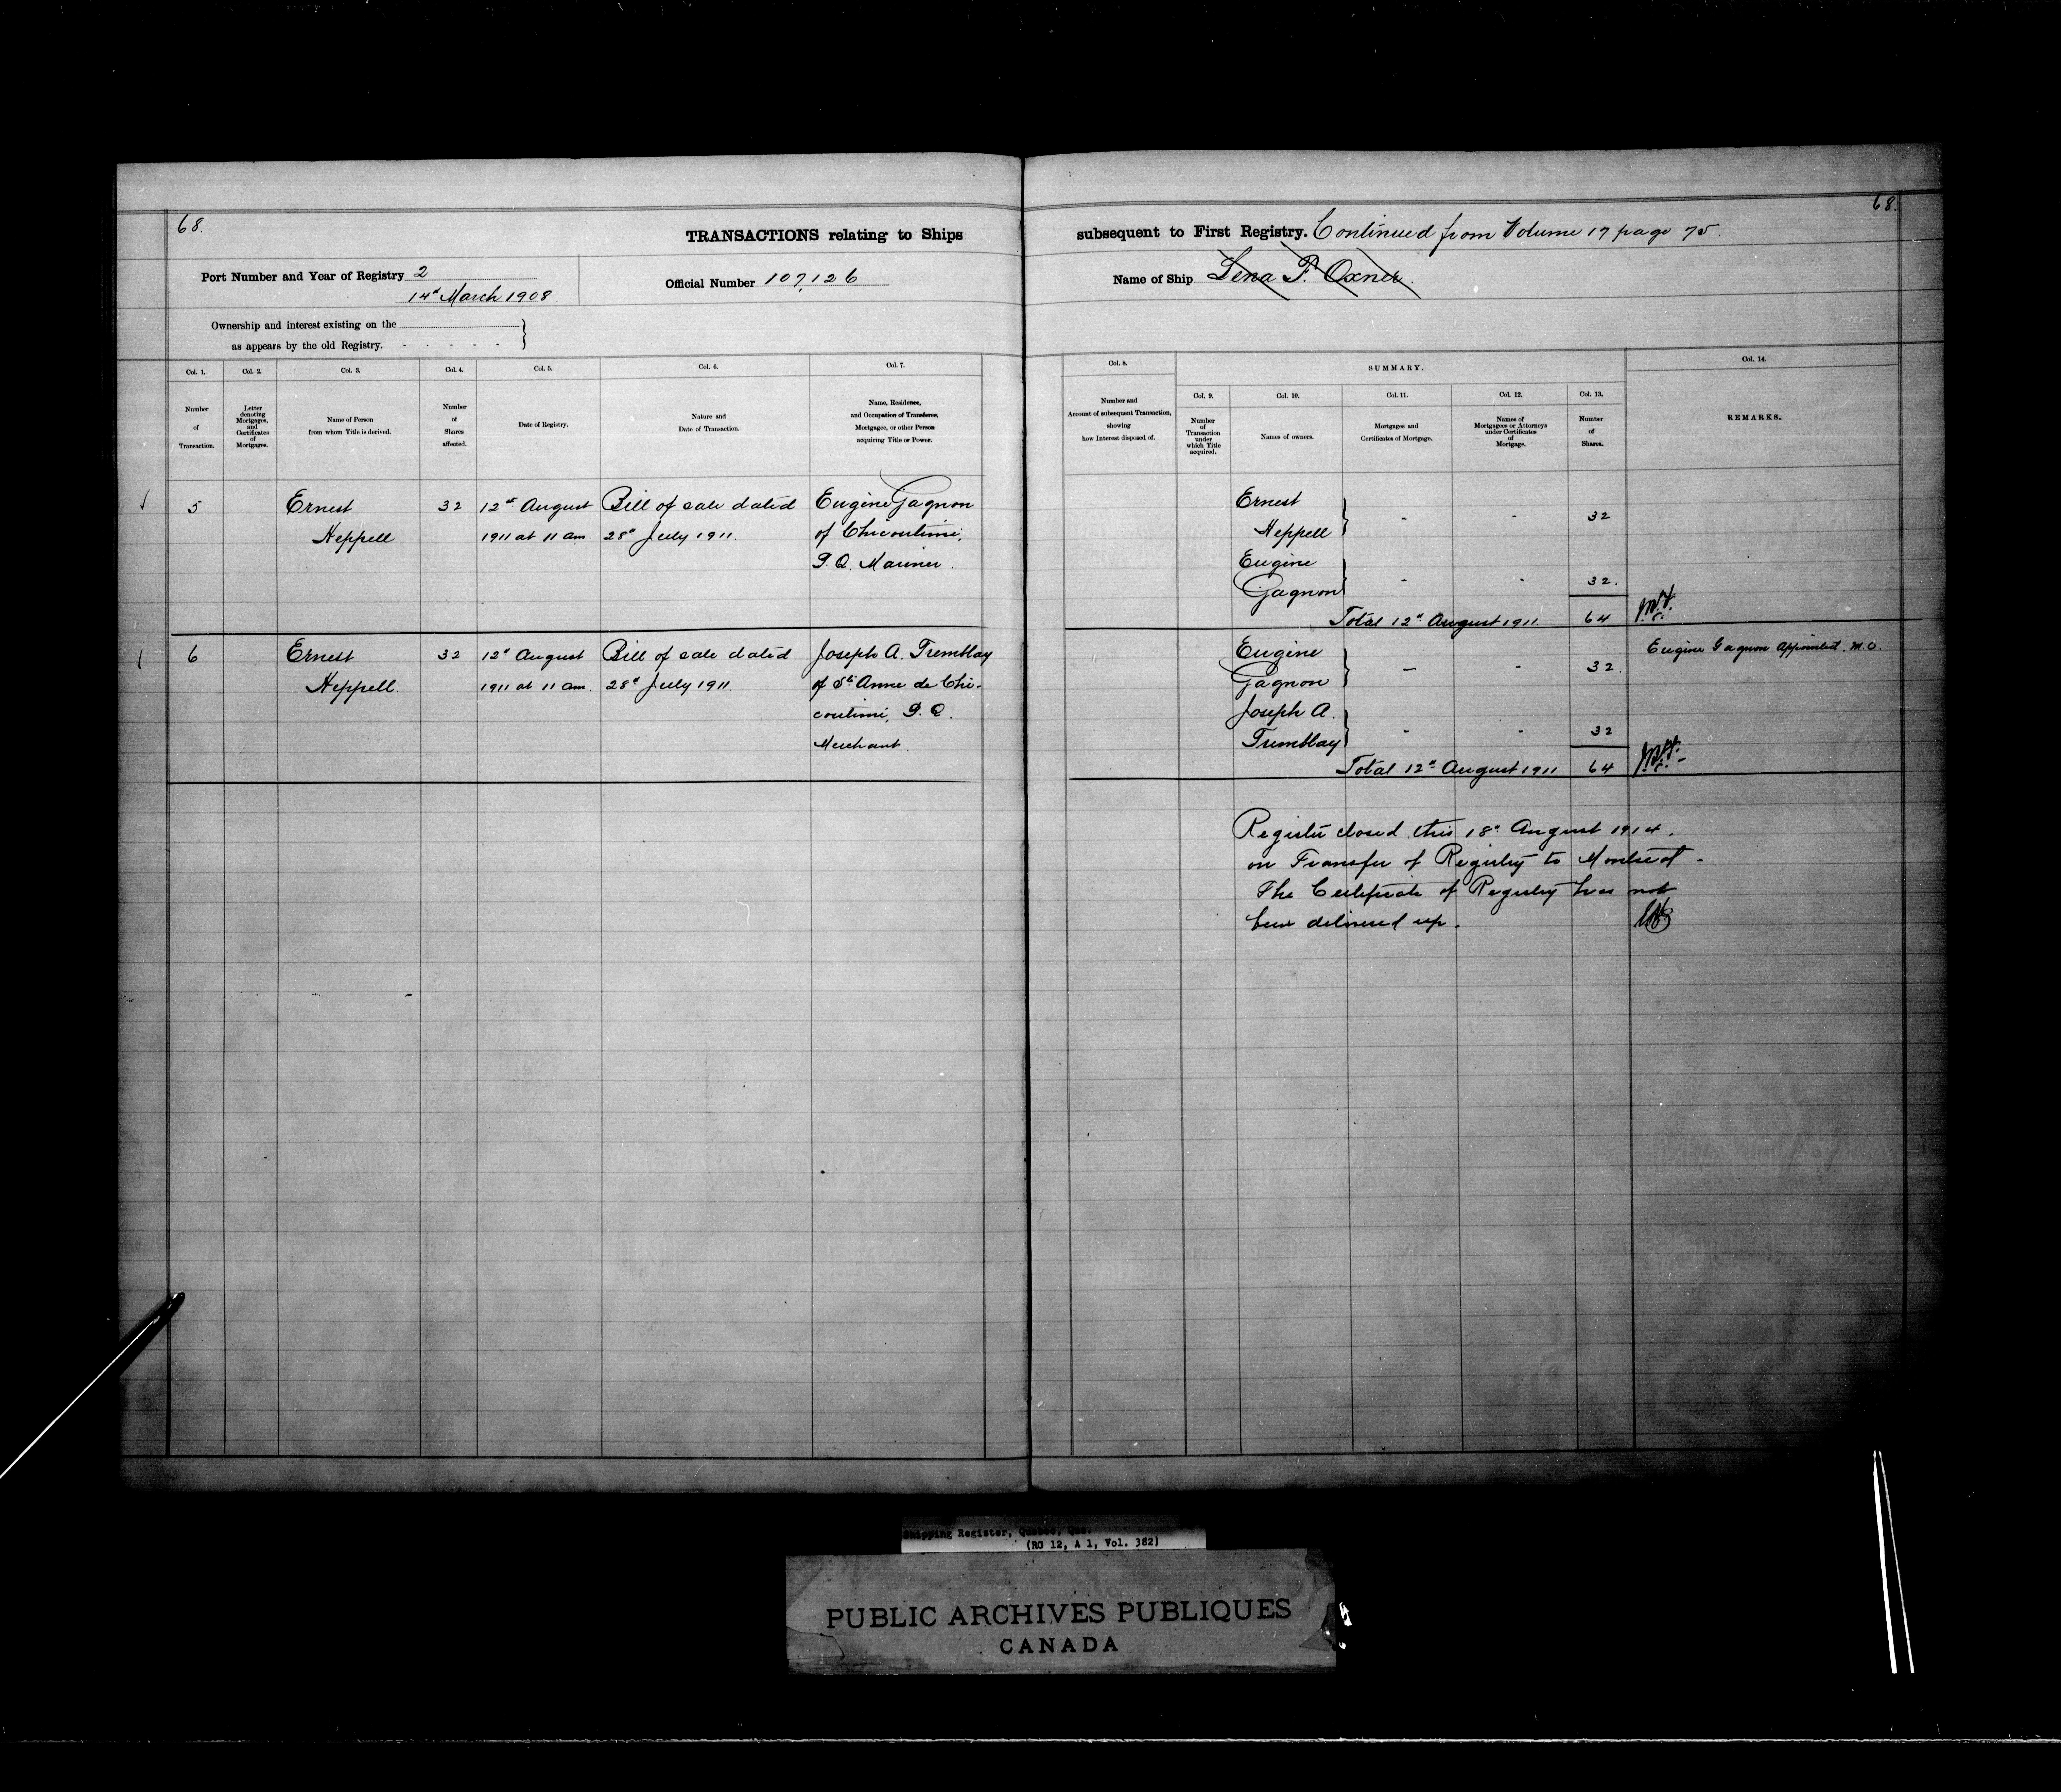 68.
68.
TRANSACTIONS relating to Ships subsequent to First Registry. Continued from Volume 17 page 75.
Port Number and Year of Registry 2
14th March 1908
Official Number 107,126
Name of Ship Lena F. Oxner.
Ownership and interest existing on the
as appears by the old Registry.
Col. 1.
Number
of
Transaction.
Col. 2.
Letter
denoting
Mortgages,
and
Certificates
of
Mortgages.
Col. 3.
Name of Person
from whom Title is derived.
Col. 4.
Number
of
Shares
affected.
Col. 5.
Date of Registry.
Col. 6.
Nature and
Date of Transaction.
Col. 7.
Name, Residence,
and Occupation of Transferee,
Mortgagee, or other Person
acquiring Title or Power.
Col. 8.
Number and
Account of subsequent Transaction,
showing
how Interest disposed of.
SUMMARY.
Col. 9.
Number
of
Transaction
under
which Title
acquired.
Col. 10.
Names of owners.
Col. 11.
Mortgages and
Certificates of Mortgage.
Col. 12.
Names of
Mortgagees or Attorneys
under Certificates
of
Mortgage.
Col. 13.
Number
of
Shares.
Col. 14.
REMARKS.
5 Ernest 32 12th August Bill of sale dated Eugène Gagnon
Heppell 1911 at 11 am. 28th July 1911. of Chicoutimi,
P.Q. Mariner.
Ernest
Heppell } - - 32
Eugène
Gagnon } - - 32.
Total 12th August 1911 64
6 Ernest 32 12th August Bill of sale dated Joseph A. Tremblay
Heppell. 1911 at 11 am. 28th July 1911. of Ste Anne de Chi-
coutimi, P.Q.
Merchant.
Eugène
Gagnon } - - 32.
Joseph A.
Tremblay } - - 32
Total 12th August 1911 64
Eugène Gagnon Appointed M.O.
Register closed this 18th August 1914.
on Transfer of Registry to Montreal -
The Certificate of Registry has not
been delivered up.
Shipping Register, Quebec, Que.
(RG 12, A 1, Vol. 382)
PUBLIC ARCHIVES PUBLIQUES
CANADA